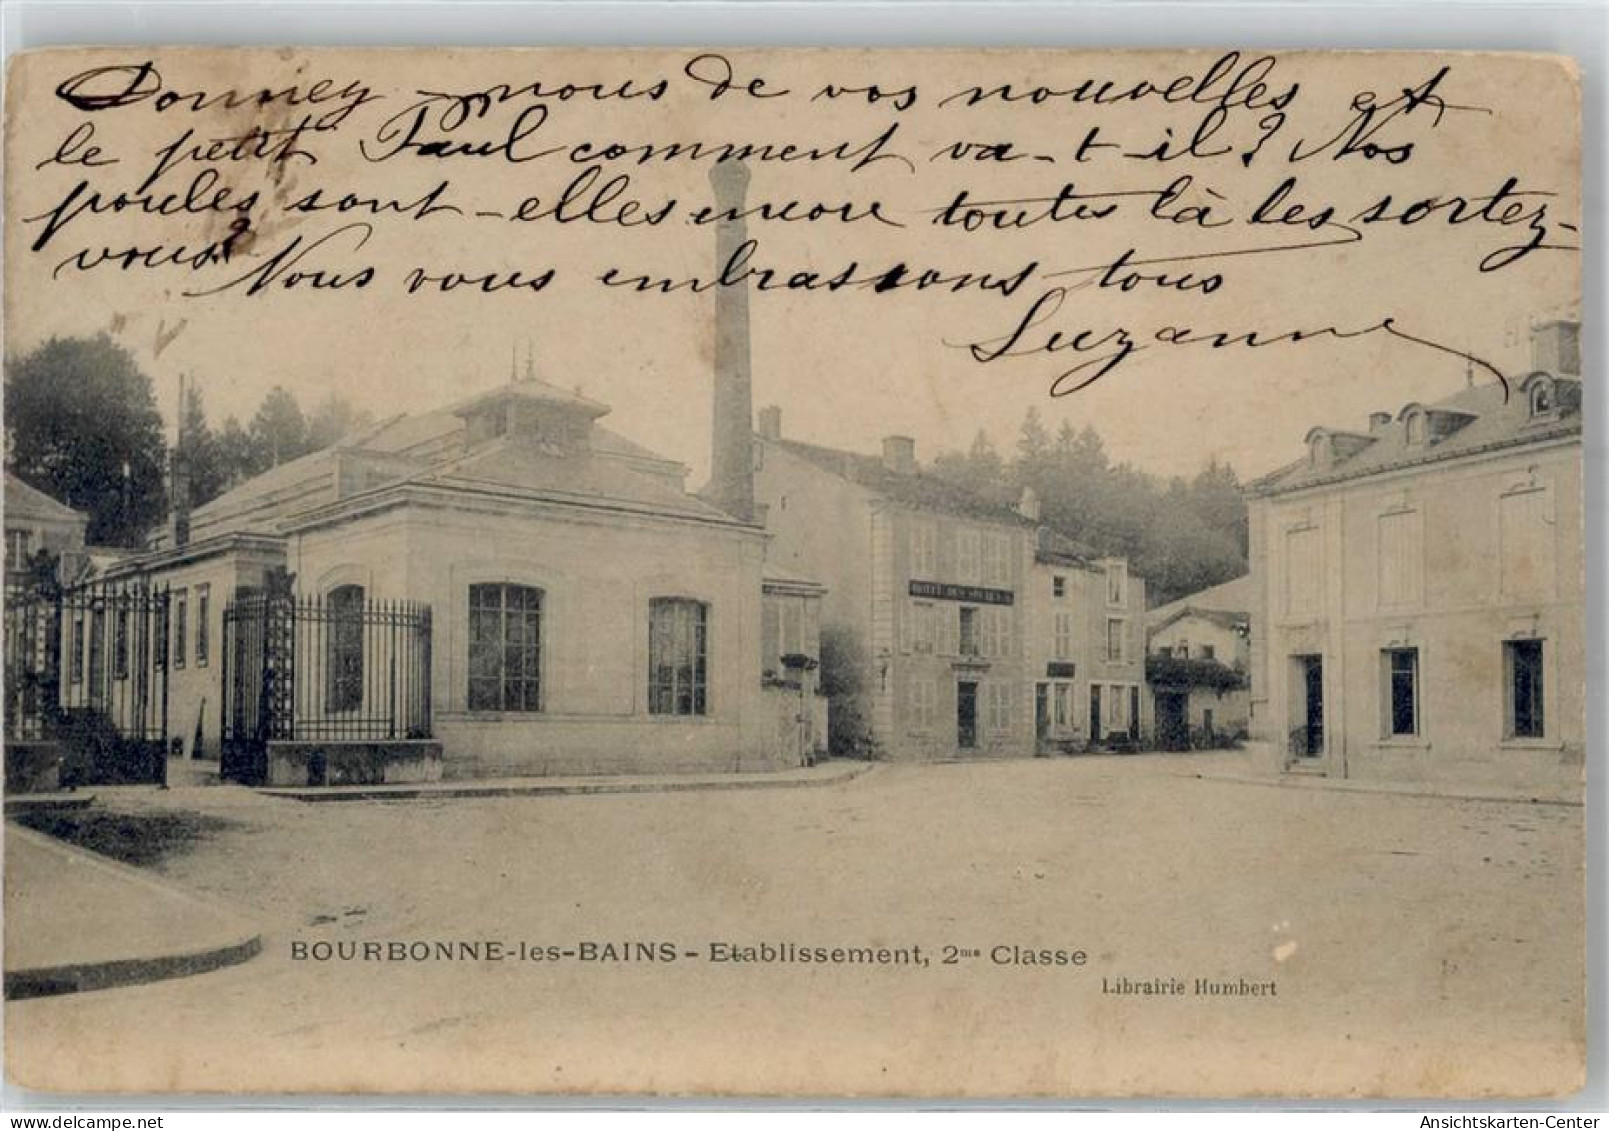 Donney-nous de vos nouvelles et
le petit Paul comment va-t-il? Nos
poules sont-elles encore toutes là les sortez-
vous? Nous vous embrassons tous
Suzanne
BOURBONNE-les-BAINS - Etablissement, 2me Classe
Librairie Humbert
Ansichtskarten-Center